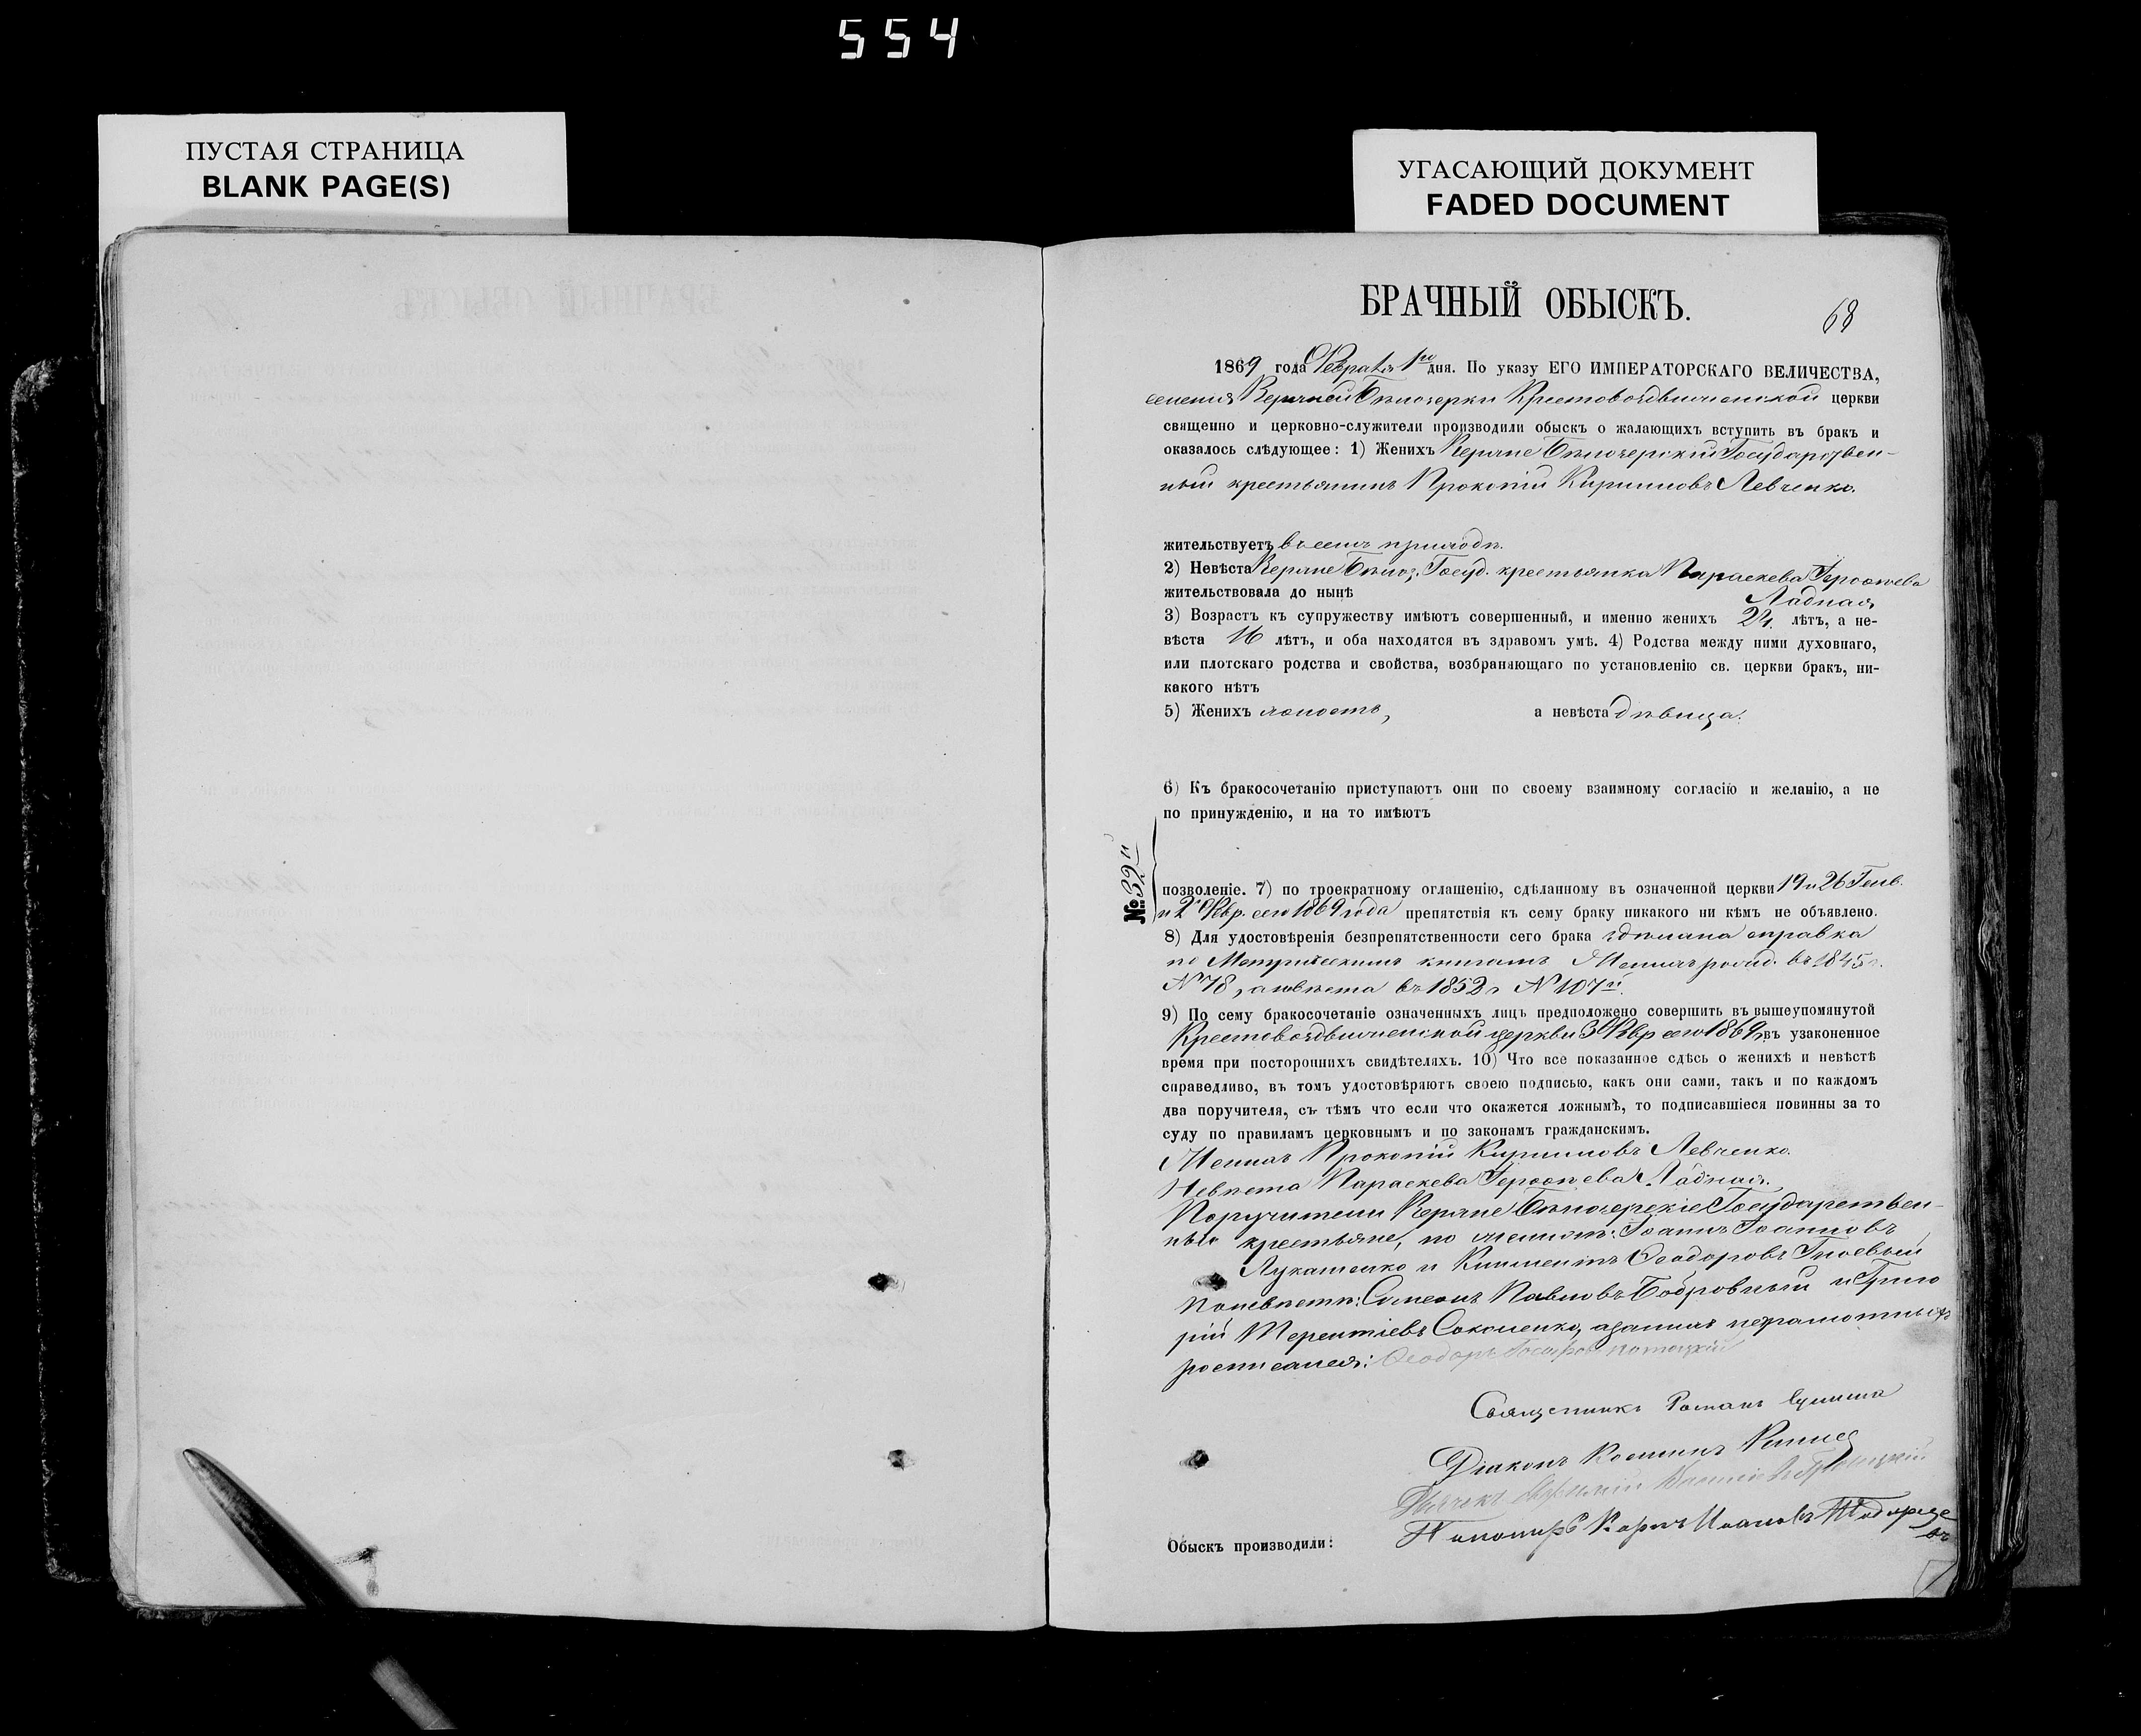 554
ПУСТАЯ СТРАНИЦА
BLANK PAGE(S)
УГАСАЮЩИЙ ДОКУМЕНТ
FADED DOCUMENT
БРАЧНЫЙ ОБЫСКЪ.
68
1869 года Февраля 1го дня. По указу ЕГО ИМПЕРАТОРСКАГО ВЕЛИЧЕСТВА,
селенія Верхней Бѣлозерки Крестовоздвиженской церкви
священно и церковно-служители производили обыскъ о жалающихъ вступить въ бракъ и
оказалось слѣдующее: 1) Женихъ Верхне Бѣлозерскій Государствен-
ный крестьянинъ Прокопій Кирилловъ Левченко.
жительствуетъ въ семъ приходѣ.
2) Невѣста Верхне Бѣлоз. Госуд. крестьянка Параскева Ерофѣева
жительствовала до нынѣ Ладная
3) Возрастъ къ супружеству имѣютъ совершенный, и именно женихъ 24 лѣтъ, а не-
вѣста 16 лѣтъ, и оба находятся въ здравомъ умѣ. 4) Родства между ними духовнаго,
или плотскаго родства и свойства, возбраняющаго по установленію св. церкви бракъ, ни-
какого нѣтъ
5) Женихъ холостъ, а невѣста дѣвица.
6) Къ бракосочетанію приступаютъ они по своему взаимному согласію и желанію, а не
по принужденію, и на то имѣютъ
№ 32й
позволеніе. 7) по троекратному оглашенію, сдѣланному въ означенной церкви 19 и 26 Генв.
и 2 Февр. сего 1869 года препятствія къ сему браку никакого ни кѣмъ не объявлено.
8) Для удостовѣренія безпрепятственности сего брака сдѣлана справка
по Метрическимъ книгамъ Женихъ рожд. въ 1845 г.
№ 78, а невѣста въ 1852 г № 107й.
9) По сему бракосочетаніе означенныхъ лицъ предположено совершить въ вышеупомянутой
Крестовоздвиженской церкви 3 Февр сего 1869 г. въ узаконенное
время при постороннихъ свидѣтеляхъ. 10) Что все показанное сдѣсь о женихѣ и невѣстѣ
справедливо, въ томъ удостовѣряютъ своею подписью, какъ они сами, такъ и по каждомъ
два поручителя, съ тѣмъ что если что окажется ложнымъ, то подписавшіеся повинны за то
суду по правиламъ церковнымъ и по законамъ гражданскимъ.
Женихъ Прокопій Кирилловъ Левченко.
Невѣста Параскева Ерофѣева Ладная.
Поручители Верхне Бѣлозерскіе Государствен-
ные крестьяне, по женихѣ: Іоаннъ Іоанновъ
Лукашенко и Климентъ Ѳеодоровъ Гноевый
По невѣстѣ: Симеонъ Павловъ Бобровный и Григо
рій Терентіевъ Соколенко, а за нихъ неграмотныхъ
росписался: Ѳеодоръ
Священникъ Романъ
Діаконъ Косминъ
Дьячекъ
Пономарь Карпъ Ивановъ
Обыскъ производили: